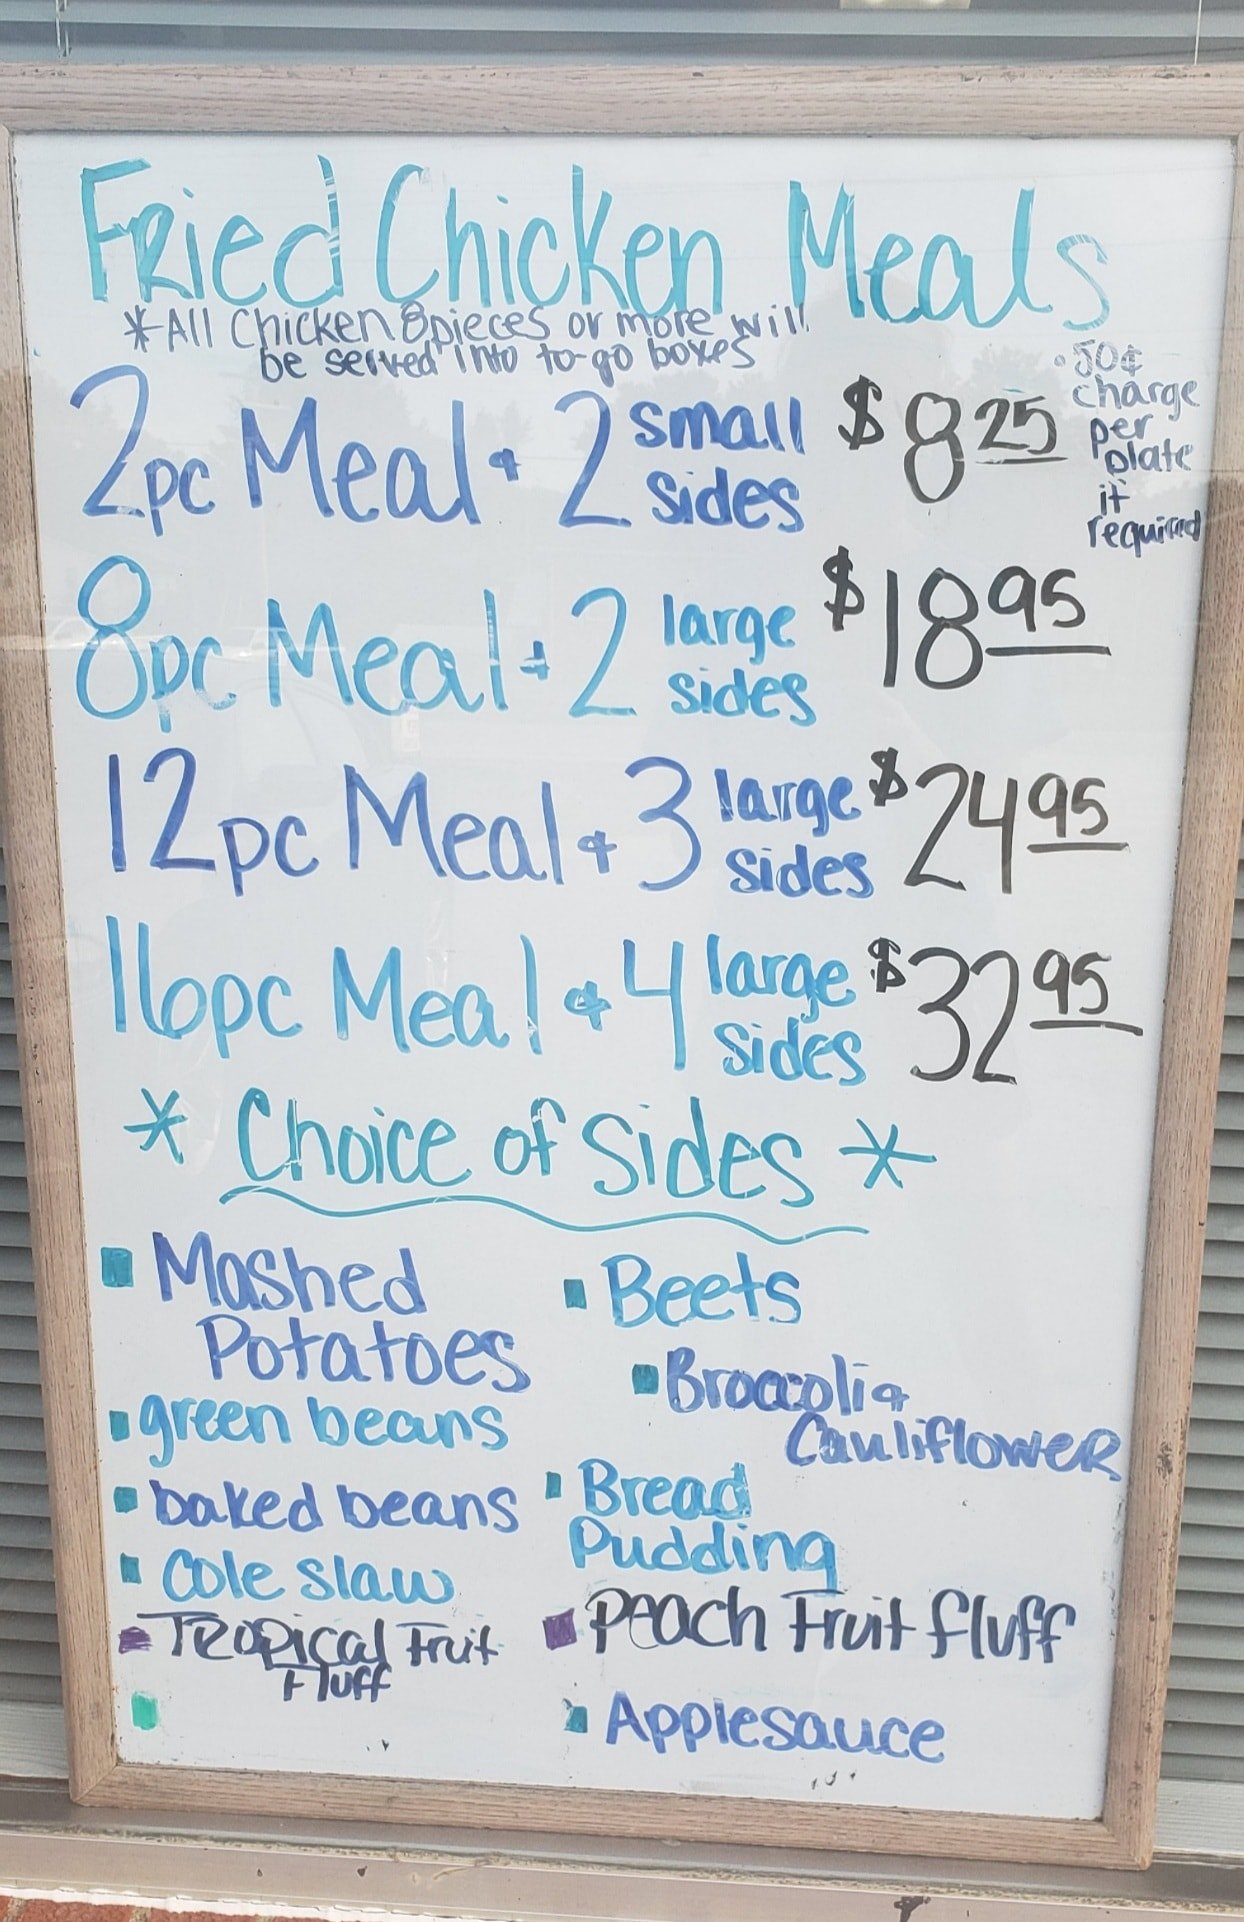 Fried Chicken Meals
*All Chicken 8pieces or more will
be served into to-go boxes
• 50¢
charge
per
plate
if
required
2pc Meal & 2 small sides $8.25
8pc Meal & 2 large sides $18.95
12pc Meal & 3 large sides $24.95
16pc Meal & 4 large sides $32.95
* Choice of Sides *
Mashed
Potatoes
green beans
baked beans
Cole slaw
Tropical Fruit
Fluff
Beets
Broccoli &
Cauliflower
Bread
Pudding
Peach Fruit fluff
Applesauce